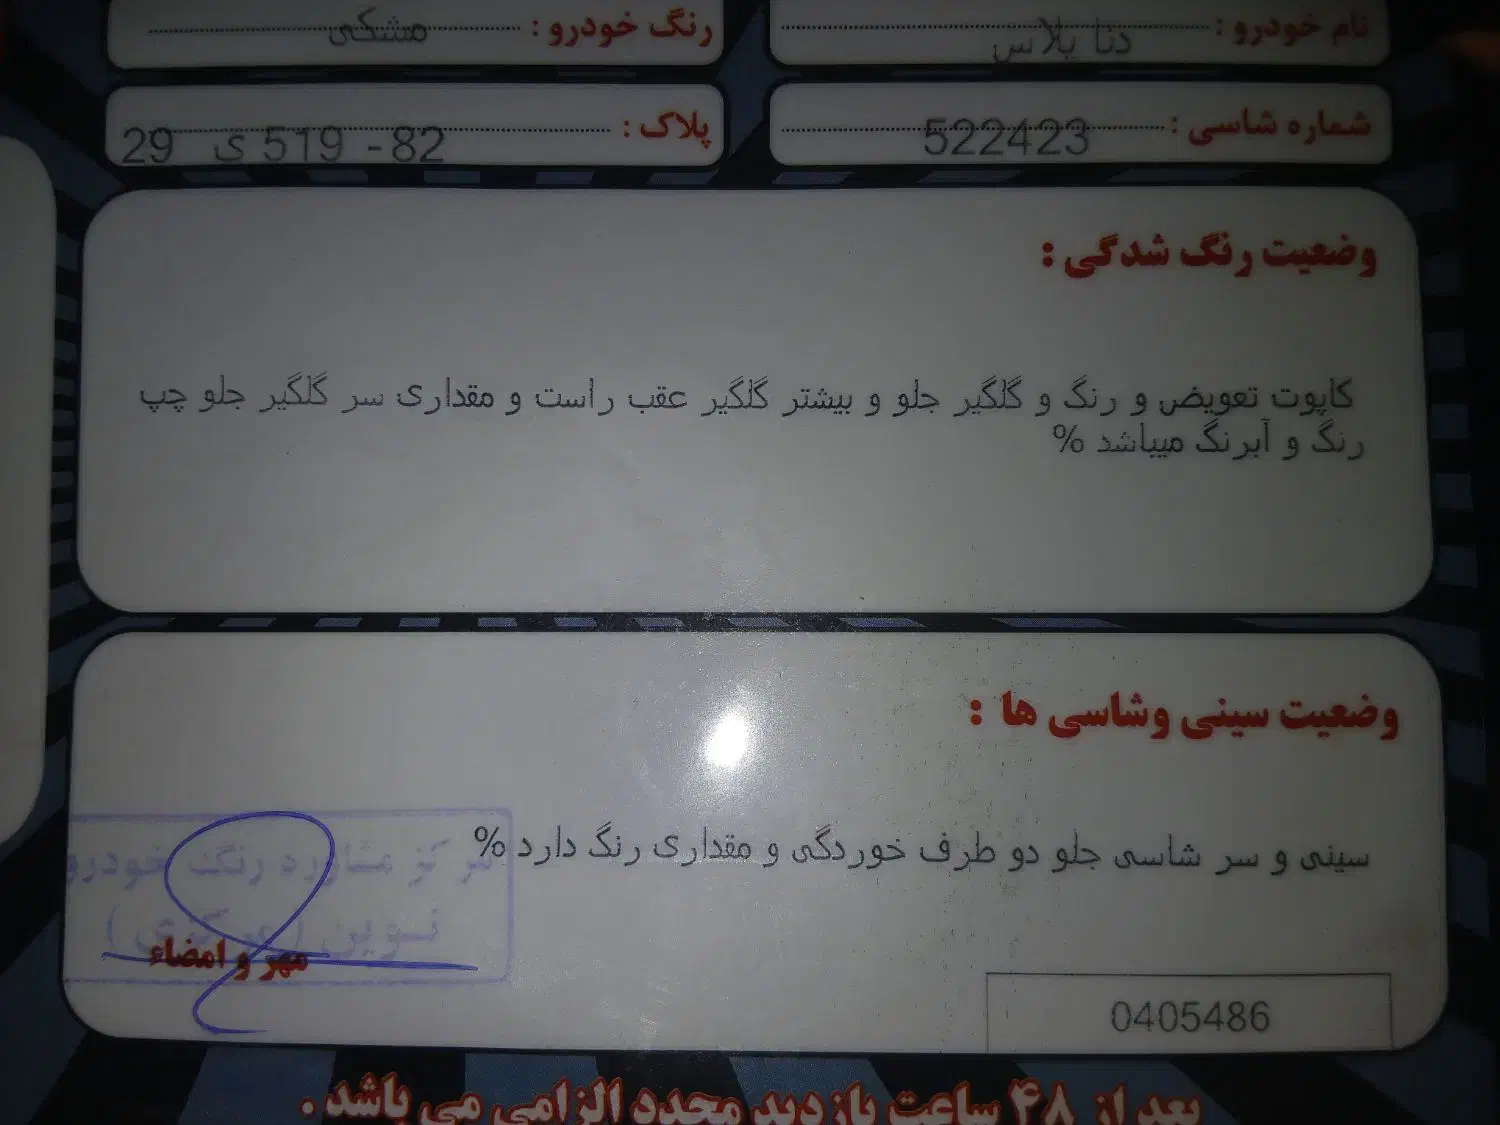 نام خودرو : دنا پلاس
رنگ خودرو : مشکی
شماره شاسی : 522423
پلاک : 29 ی 519 - 82
وضعیت رنگ شدگی :
کاپوت تعویض و رنگ و گلگیر جلو و بیشتر گلگیر عقب راست و مقداری سر گلگیر جلو چپ
رنگ و آبرنگ میباشد %
وضعیت سینی وشاسی ها :
سینی و سر شاسی جلو دو طرف خوردگی و مقداری رنگ دارد %
مرکز مشاوره رنگ خودرو
نوین (مرکزی)
مهر و امضاء
0405486
بعد از ۴۸ ساعت بازدید مجدد الزامی می باشد .